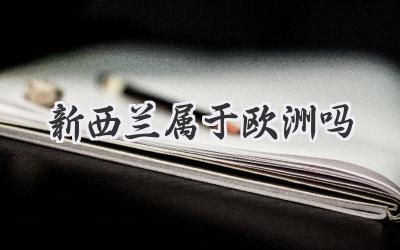 新西兰属于欧洲吗